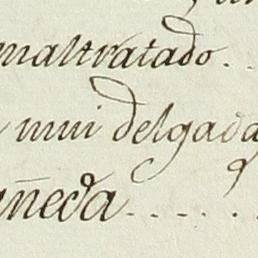 maltratado..
mui delgada
añeda.......